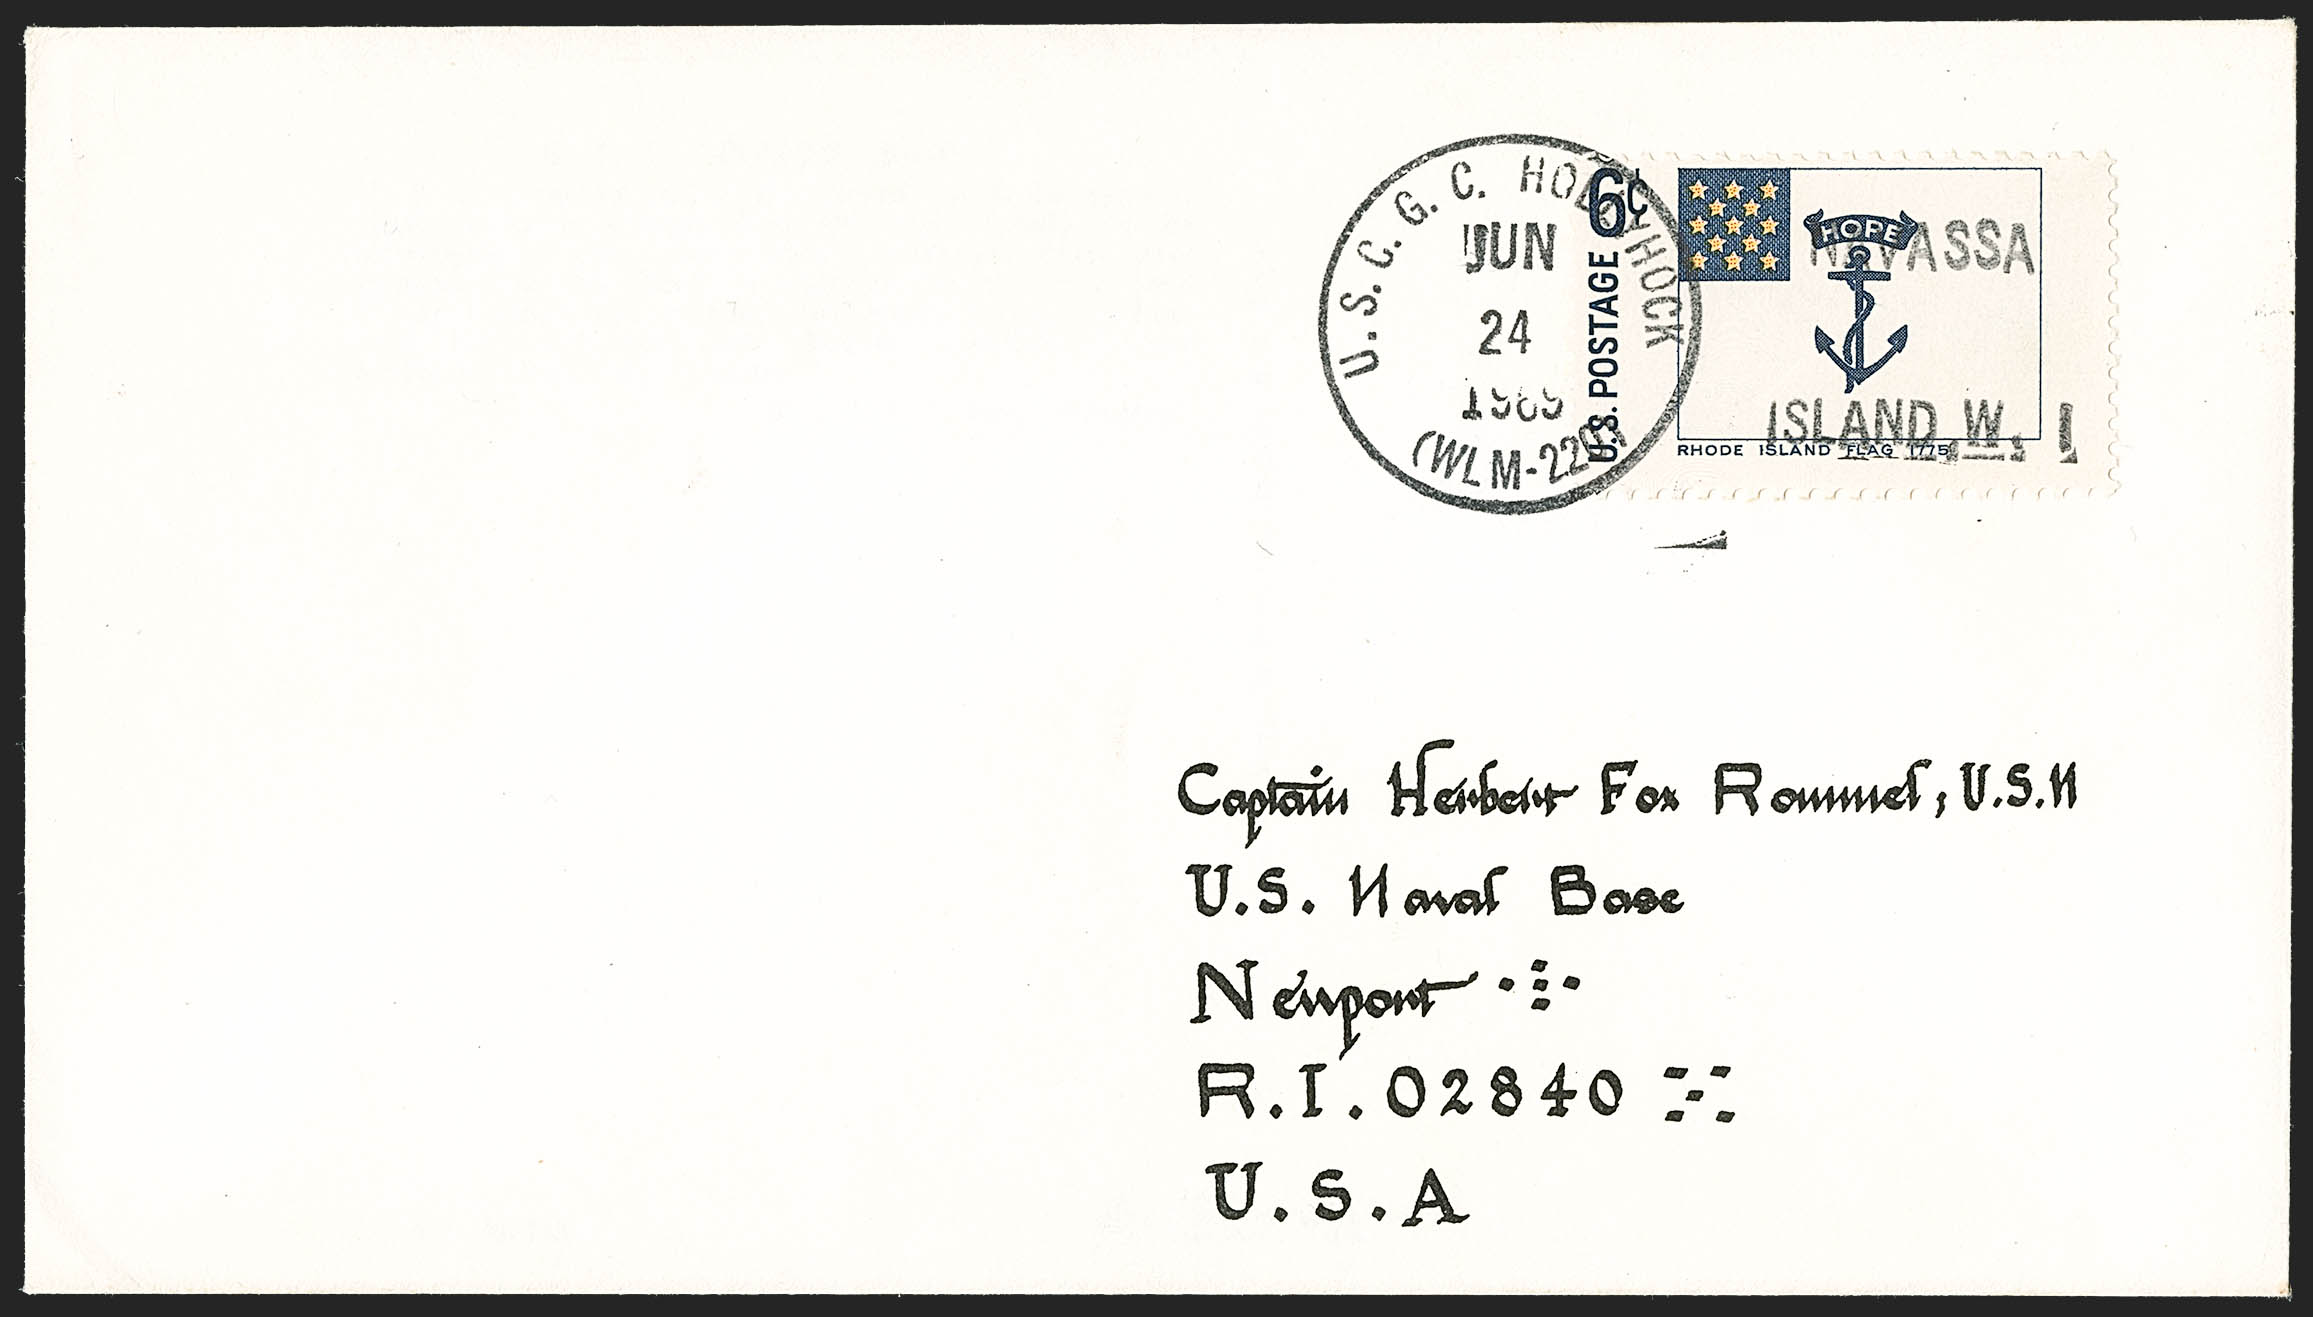 U.S.C.G.C. HOLLYHOCK
JUN
24
1969
(WLM-220)
6¢
U.S. POSTAGE
HOPE
NAVASSA
ISLAND, W. I
RHODE ISLAND FLAG 1775
Captain Herbert Fox Rommel, U.S.N
U.S. Naval Base
Newport
R.I. 02840
U.S.A